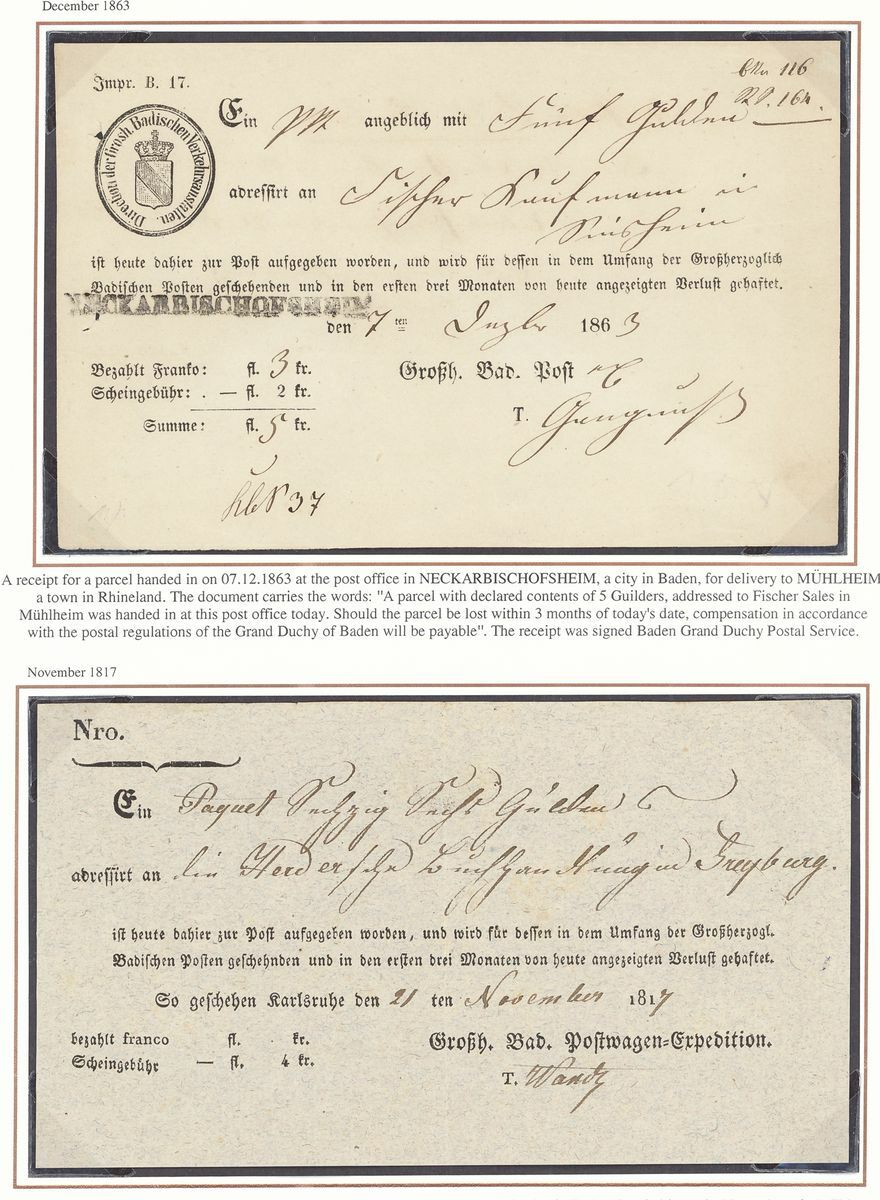 December 1863
Impr. B. 17.
116
164.
Direction der Grosh. Badischen Verkehrsanstalten.
Ein angeblich mit Fünf Gulden
adressirt an Fischer Kaufmann in
Sinsheim
ist heute dahier zur Post aufgegeben worden, und wird für dessen in dem Umfang der Großherzoglich
Badischen Posten geschehenden und in den ersten drei Monaten von heute angezeigten Verlust gehaftet.
NECKARBISCHOFSHEIM
den 7 ten Dezbr 1863
Bezahlt Franko: fl. 3 kr.
Großh. Bad. Post
Scheingebühr: . — fl. 2 kr.
T.
Summe: fl. 5 kr.
37
A receipt for a parcel handed in on 07.12.1863 at the post office in NECKARBISCHOFSHEIM, a city in Baden, for delivery to MÜHLHEIM
a town in Rhineland. The document carries the words: "A parcel with declared contents of 5 Guilders, addressed to Fischer Sales in
Mühlheim was handed in at this post office today. Should the parcel be lost within 3 months of today's date, compensation in accordance
with the postal regulations of the Grand Duchy of Baden will be payable". The receipt was signed Baden Grand Duchy Postal Service.
November 1817
Nro.
Ein Paquet Sechzig Sechs Gulden
adressirt an die Herdersche Buchhandlung in Freyburg.
ist heute dahier zur Post aufgegeben worden, und wird für dessen in dem Umfang der Großherzogl.
Badischen Posten geschehnden und in den ersten drei Monaten von heute angezeigten Verlust gehaftet.
So geschehen Karlsruhe den 21 ten November 1817
bezahlt franco fl. kr.
Großh. Bad. Postwagen-Expedition.
Scheingebühr — fl. 4 kr.
T.